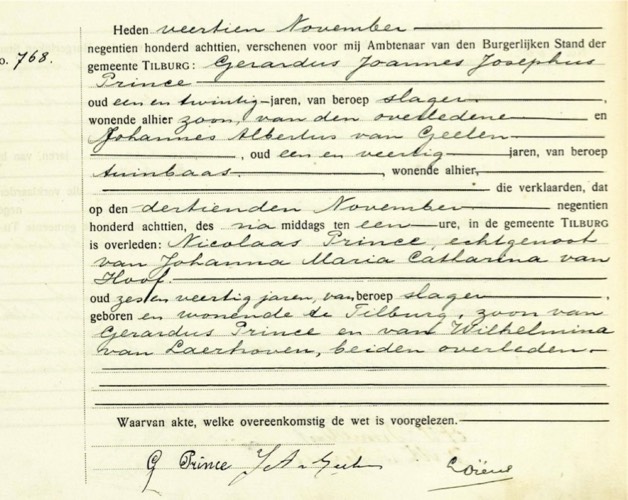 Heden veertien November
o. 768.
negentien honderd achttien, verschenen voor mij Ambtenaar van den Burgerlijken Stand der
gemeente TILBURG: Gerardus Joannes Josephus
Prince
oud een en twintig jaren, van beroep slager,
wonende alhier zoon, van den overledene en
Johannes Albertus van Geelen
, oud een en veertig jaren, van beroep
tuinbaas, wonende alhier,
die verklaarden, dat
op den dertienden November negentien
honderd achttien, des na middags ten een ure, in de gemeente TILBURG
is overleden: Nicolaas Prince, echtgenoot
van Johanna Maria Catharina van
Hoof.
oud zes en veertig jaren, van beroep slager,
geboren en wonende te Tilburg, zoon van
Gerardus Prince en van Wilhelmina
van Laerhoven, beiden overleden.
Waarvan akte, welke overeenkomstig de wet is voorgelezen.
G Prince